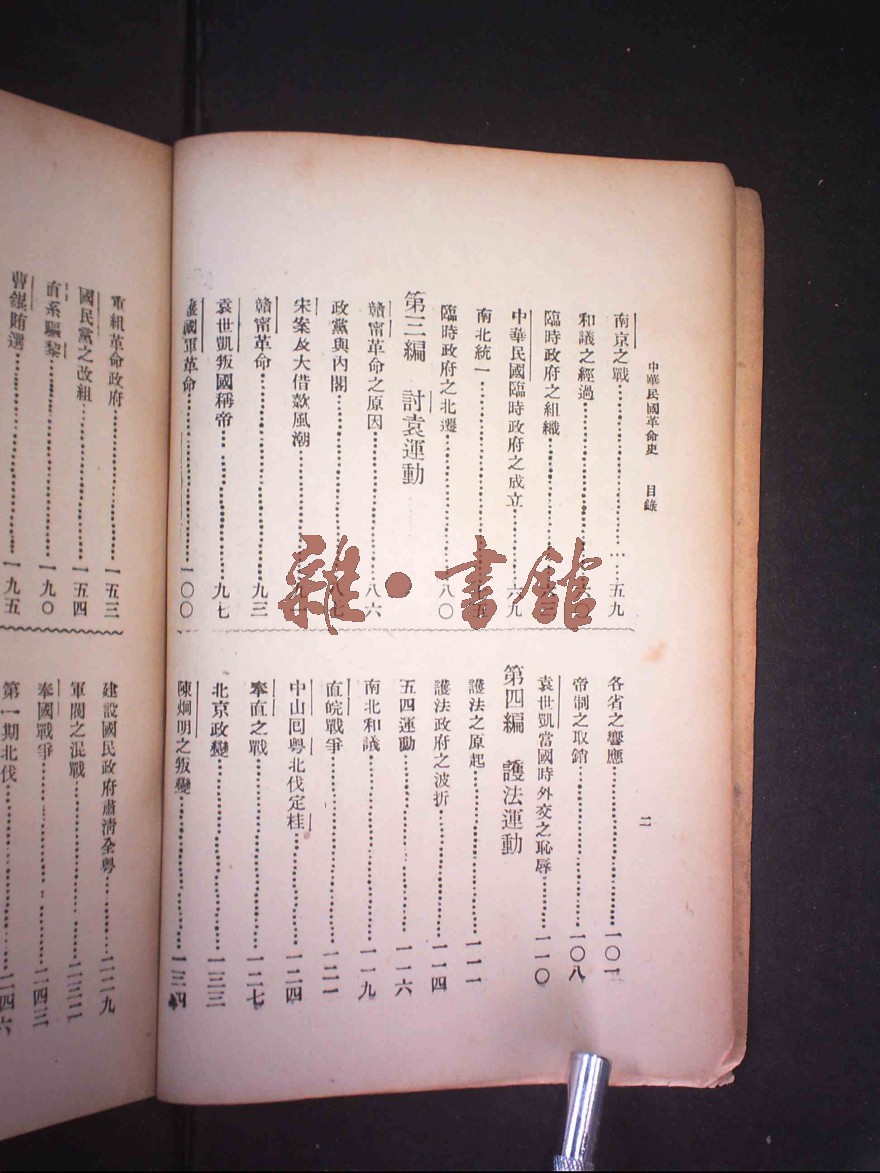 中華民國革命史 目錄
二
南京之戰 五九
和議之經過 六〇
臨時政府之組織
中華民國臨時政府之成立 六九
南北統一 七五
臨時政府之北遷 八〇
第三編 討袁運動
贛甯革命之原因 八六
政黨與內閣 八七
宋案及大借款風潮
贛甯革命 九三
袁世凱叛國稱帝 九七
護國軍革命 一〇〇
各省之響應 一〇二
帝制之取銷 一〇八
袁世凱當國時外交之恥辱 一一〇
第四編 護法運動
護法之原起 一一一
護法政府之波折 一一四
五四運動 一一六
南北和議 一一九
直皖戰爭 一二一
中山囘粵北伐定桂 一二四
奉直之戰 一二七
北京政變 一三三
陳烱明之叛變 一三四
重組革命政府 一五三
國民黨之改組 一五四
直系驅黎 一九〇
曹錕賄選 一九五
建設國民政府肅淸全粵 二二九
軍閥之混戰 二三二
奉國戰爭 二四三
第一期北伐 二四六
雜·書館